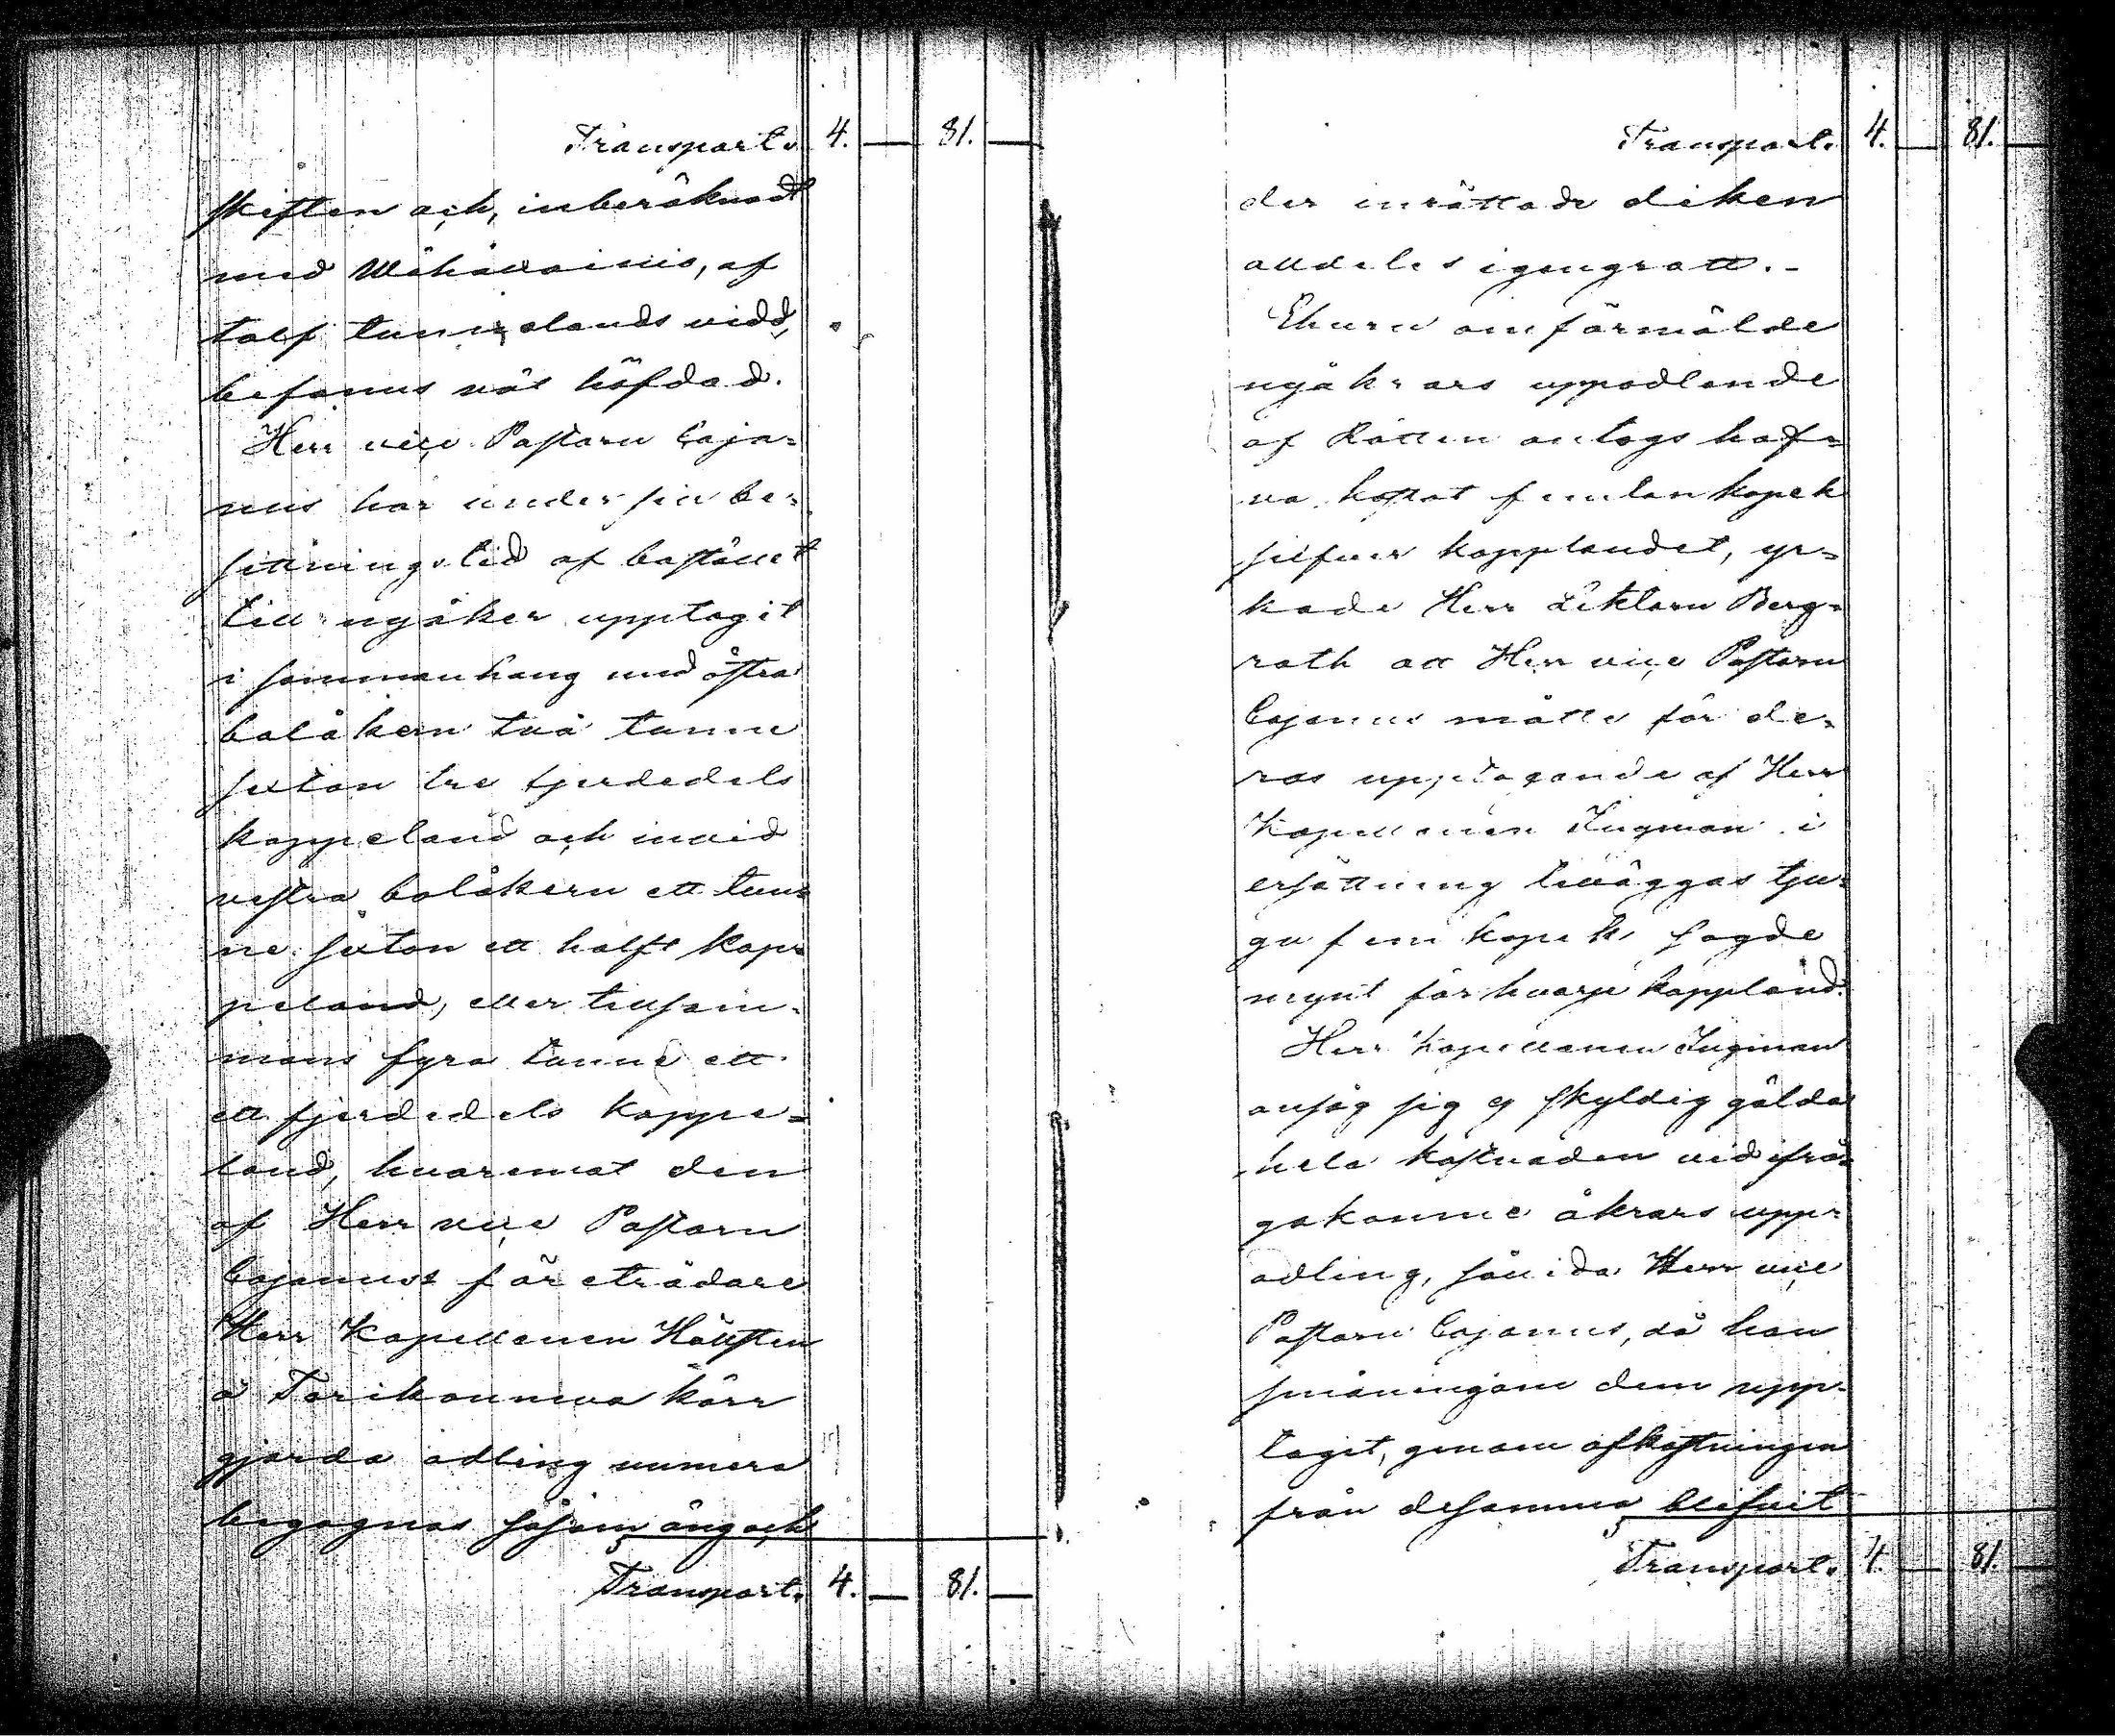 Transport. 4. — 81. —
skiften och, inberäknadt
med Wähävainio, af
tolf tunnelands vidd,
befanns väl häfdad.
Herr vice Pastorn Caja=
nus har under sin be=
sittningstid af bostället
till nyåker upptagit
i sammanhang med östra
bolåkern två tunne
sexton tre fjerdedels
kappeland och invid
vestra bolåkern ett tun=
ne sexton ett halft kap=
peland, eller tillsam=
mans fyra tunne ett
ett fjerdedels kappe=
land, hvaremot den
af Herr vice Pastorn
Cajanus företrädare
Herr Kapellanen Hällsten
å Torikounwa kärr
gjorda odling numera
begagnas såsom äng och
Transport. 4. — 81. —
Transport. 4. — 81. —
der inrättade diken
alldeles igengrott. -
Ehuru omförmälde
nyåkrars uppodlande
af Rätten antogs haf=
va kostat femton kopek
silfver kapplandet, yr=
kade Herr Lektorn Berg=
roth att Herr vice Pastorn
Cajanus måtte för de=
ras upptagande af Herr
Kapellanen Ingman i
ersättning tilläggas tju=
gu fem kopek sagde
mynt för hvarje kappland.
Herr Kapellanen Ingman
ansåg sig ej skyldig gälda
hela kostnaden vid ifrå=
gakomne åkrars upp=
odling, sånida Herr vice
Pastorn Cajanus, då han
småningom dem upp=
tagit, genom afkastningen
från desamma blifvit
Transport. 4. — 81. —